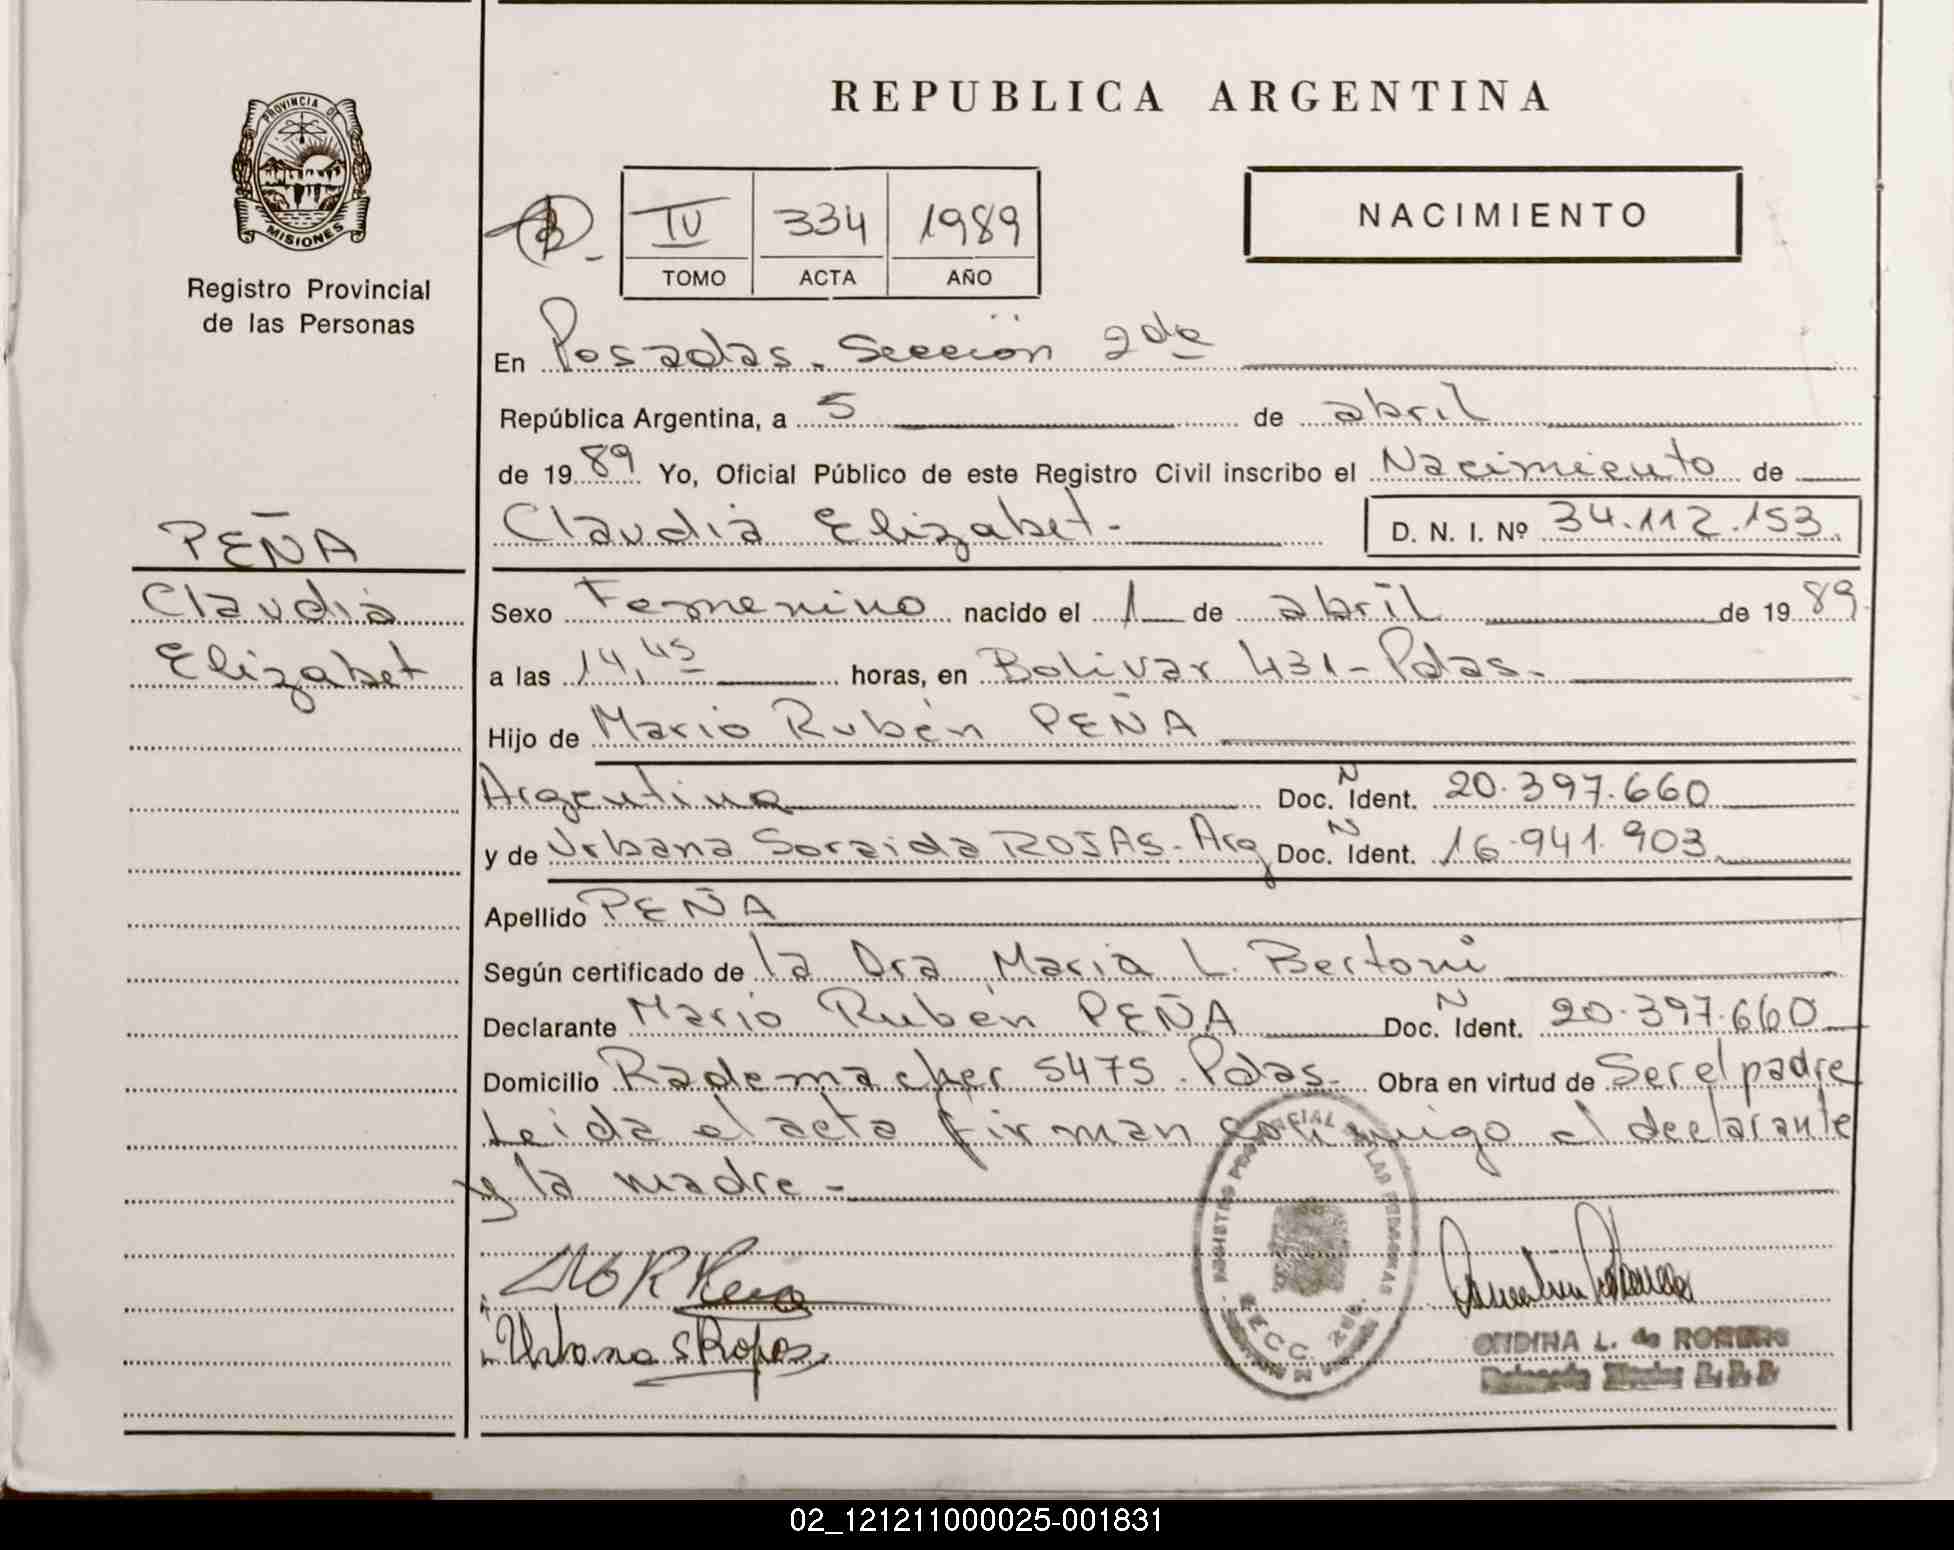 REPUBLICA ARGENTINA
PROVINCIA DE
MISIONES
Registro Provincial
de las Personas
IV 334 1989
TOMO ACTA AÑO
NACIMIENTO
En Posadas. Sección 2da
República Argentina, a 5 de abril
de 1989 Yo, Oficial Público de este Registro Civil inscribo el Nacimiento de
Claudia Elizabet.- D. N. I. Nº 34.112.153.
PEÑA
Claudia
Elizabet
Sexo Femenino nacido el 1 de abril de 1989
a las 14,45 horas, en Bolivar 431-Pdas.-
Hijo de Mario Rubén PEÑA
Argentino Doc. N Ident. 20.397.660
y de Urbana Soraida ROJAS. Arg Doc. N Ident. 16.941.903
Apellido PEÑA
Según certificado de la Dra Maria L. Bertoni
Declarante Mario Rubén PEÑA Doc. N Ident. 20.397.660
Domicilio Rademacher 5475. Pdas. Obra en virtud de Ser el padre
Leida el acta firman conmigo el declarante
y la madre.-
Urbana S Rojas
ONDINA L. de ROMERO
02_121211000025-001831